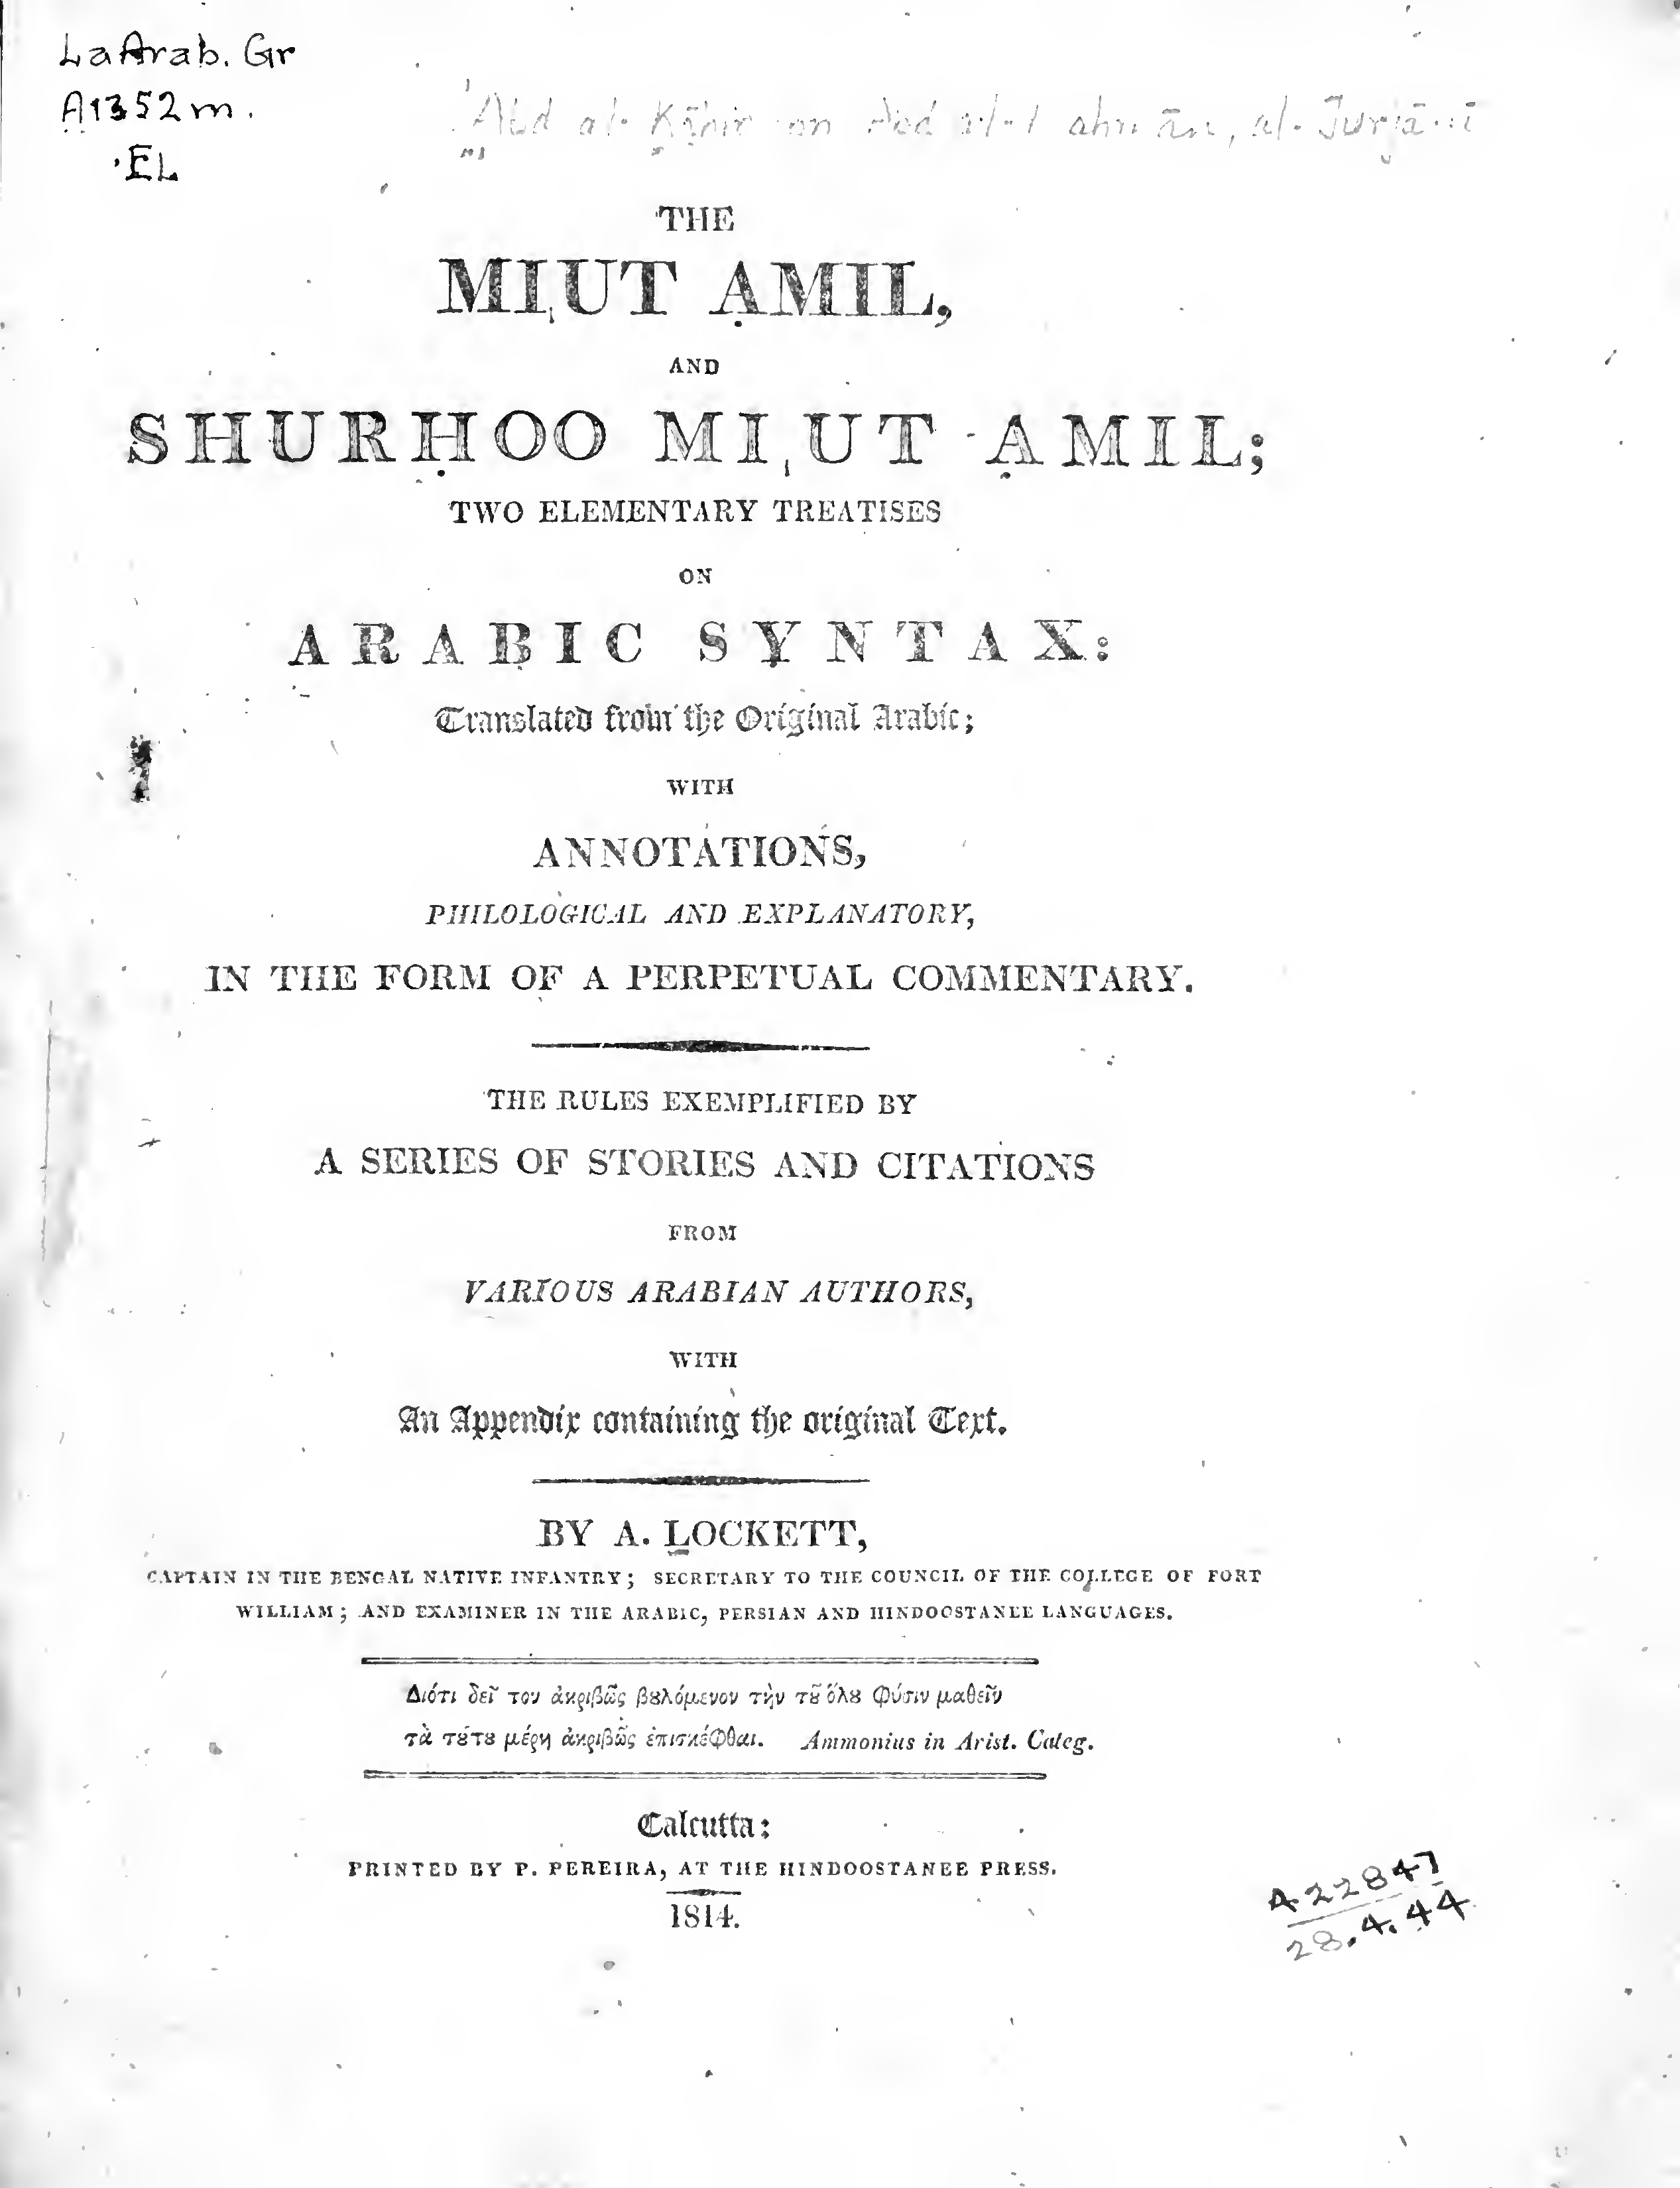 LaArab. Gr
A1352m.
.EL
'Abd al-Ḳāhir ibn ahmān, al-Jurjānī
THE
MI,UT AMIL,
AND
SHURḤOO MI,UT ẠMIL;
TWO ELEMENTARY TREATISES
ON
ARABIC SYNTAX:
Translated from the Original Arabic;
WITH
ANNOTATIONS,
PHILOLOGICAL AND EXPLANATORY,
IN THE FORM OF A PERPETUAL COMMENTARY.
THE RULES EXEMPLIFIED BY
A SERIES OF STORIES AND CITATIONS
FROM
VARIOUS ARABIAN AUTHORS,
WITH
An Appendix containing the original Text.
BY A. LOCKETT,
CAPTAIN IN THE BENGAL NATIVE INFANTRY; SECRETARY TO THE COUNCIL OF THE COLLEGE OF FORT
WILLIAM; AND EXAMINER IN THE ARABIC, PERSIAN AND HINDOOSTANEE LANGUAGES.
Διότι δεῖ τον ἀκριβῶς βȣλόμενον τὴν τȣ͂ ὅλȣ φύσιν μαθεῖν
τὰ τȣ́τȣ μέρη ἀκριβῶς ἐπισκέφθαι. Ammonius in Arist. Categ.
Calcutta:
PRINTED BY P. PEREIRA, AT THE HINDOOSTANEE PRESS.
1814.
422847
28.4.44